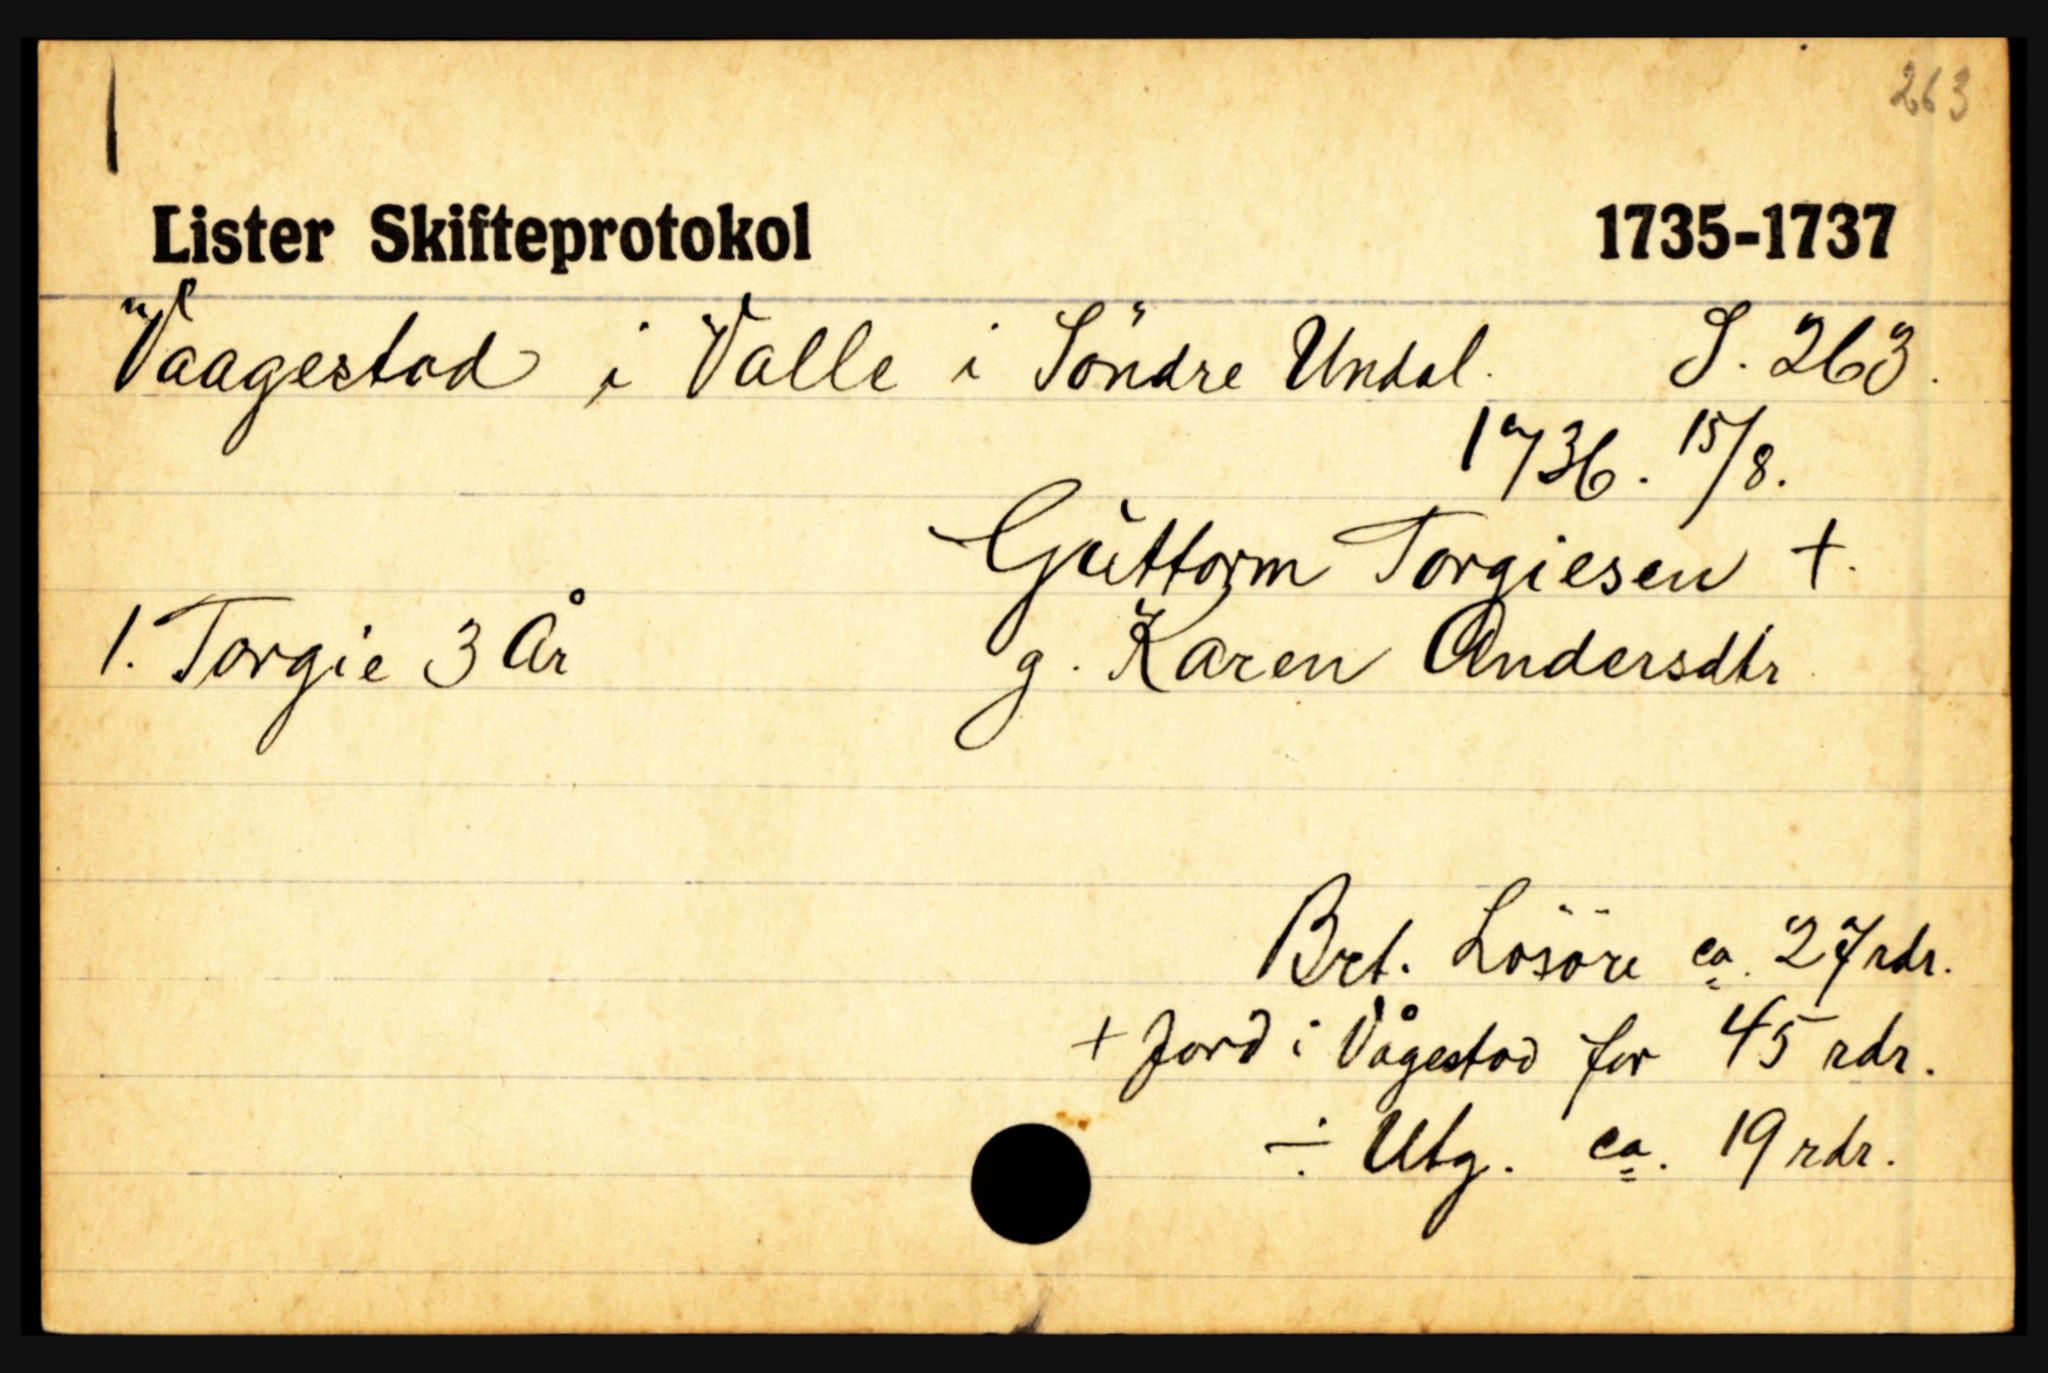 263
Lister Skifteprotokol 1735-1737
Vaagestad i Valle i Söndre Undal. S. 263.
1736. 15/8.
Guttorm Torgiesen +.
1. Torgie 3 År g. Karen Andersdtr
Brt. Lösöre ca. 27 rdr.
+ Jord i Vågestad for 45 rdr.
÷ Utg. ca. 19 rdr.